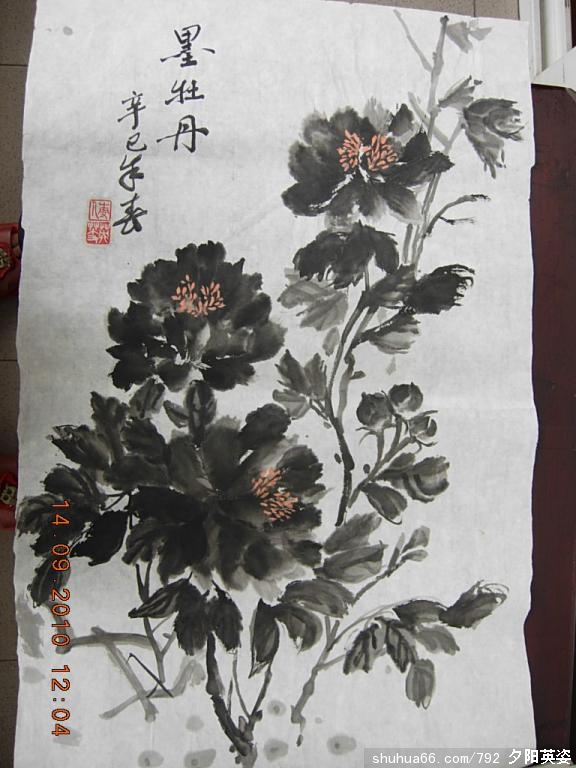 墨牡丹
辛巳年春
14.09.2010 12:04
shuhua66.com/792 夕阳英姿